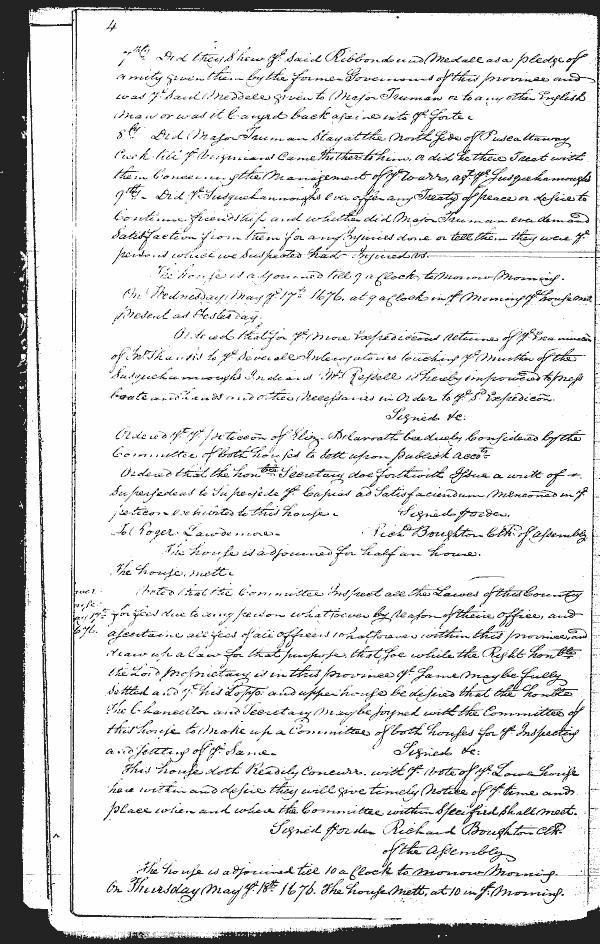 4
7thly Did they Shew ye Said Ribbond and Medall as a pledge of
amity given them by the former Governours of this province and
was ye Said Meddele given to Major Truman or to any other English
man or was it Caryed back againe into ye forte.
8ly Did Major Truman Stay at the North Side of Puscattaway
Creek till ye Virginians Came thither to him, or did he there Treat with
them Concerning the Management of ye Warre, agt ye Susquehannoughs
9thly Did ye Susquehannoughs ever offer any Treaty of peace or desire to
Continue friendship and whether did Major Truman ever demand
Satisfaction from them for any Injuries done or tell them they were ye
persons which we Suspected had Injured us.
The house is adjourned till 9 a Clock to Morrow Morning.
On Wednesday May ye 17th 1676. at 9 a Clock in ye Morning ye house met
present as Yesterday.
Ordered that for ye more Expedicious returne of ye Examinacon
of Jno Shankes to ye Severall Interrogatories touching ye Murther of the
Susquehannoughs Indians Mr Ressell is hereby impowred to press
boate and hands and other Necessaries in Order to ye Sd Expedicon.
Signed &c:
Ordered yt ye peticcon of Eliz: be duely Considered by the
Committee of both houses to both upon publick accots
Ordered that the honble Secretary doe forthwith Issue a writt of
Supersedeas to Supersede ye Capias ad Satisfaciendum Menconed in ye
peticon exhibited to this house.
Signed p order
To Roger
Richd Boughton Clk of Assembly
The house is adjourned for half an houre.
The house mett.
Voted that the Committee Inspect all the Lawes of this Country
for fees due to any person whatsoever by Reason of theire office, and
ascertaine all fees of all officers whatsoever within this province, and
draw up a law for that purpose, that soe while the Right honble
the Lord Proprietary is in this province ye Same may be fully
Settled and yt his Lopps and upper house be desired that the honble
The Chancellor and Secretary may be Joyned with the Committee of
this house to make up a Committee of both houses for ye Inspecting
and Setting of ye Same.
Signed &c:
This house doth Readily Concurr with ye Vote of ye Lower house
here within and desire they will give timely Notice of ye time and
place when and where the Committee within Specified Shall meet.
Signed p order Richard Boughton Clk
of the Assembly
The house is adjourned till 10 a Clock to morrow Morning.
On Thursday May ye 18th 1676. The house Mett, at 10 in ye Morning.